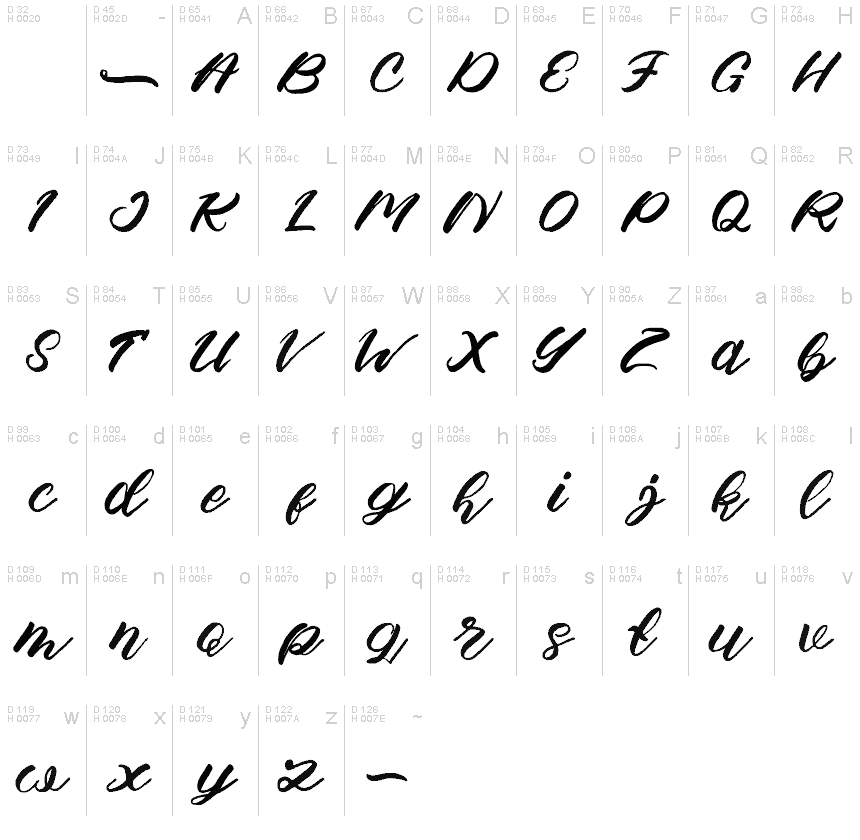 D 32 D 45 - D 65 A D 66 B D 67 C D 68 D D 69 E D 70 F D 71 G D 72 H
H 0020 H 002D H 0041 H 0042 H 0043 H 0044 H 0045 H 0046 H 0047 H 0048
- A B C D E F G H
D 73 I D 74 J D 75 K D 76 L D 77 M D 78 N D 79 O D 80 P D 81 Q D 82 R
H 0049 H 004A H 004B H 004C H 004D H 004E H 004F H 0050 H 0051 H 0052
I J K L M N O P Q R
D 83 S D 84 T D 85 U D 86 V D 87 W D 88 X D 89 Y D 90 Z D 97 a D 98 b
H 0053 H 0054 H 0055 H 0056 H 0057 H 0058 H 0059 H 005A H 0061 H 0062
S T U V W X Y Z a b
D 99 c D 100 d D 101 e D 102 f D 103 g D 104 h D 105 i D 106 j D 107 k D 108 l
H 0063 H 0064 H 0065 H 0066 H 0067 H 0068 H 0069 H 006A H 006B H 006C
c d e f g h i j k l
D 109 m D 110 n D 111 o D 112 p D 113 q D 114 r D 115 s D 116 t D 117 u D 118 v
H 006D H 006E H 006F H 0070 H 0071 H 0072 H 0073 H 0074 H 0075 H 0076
m n o p q r s t u v
D 119 w D 120 x D 121 y D 122 z D 126 ~
H 0077 H 0078 H 0079 H 007A H 007E
w x y z ~